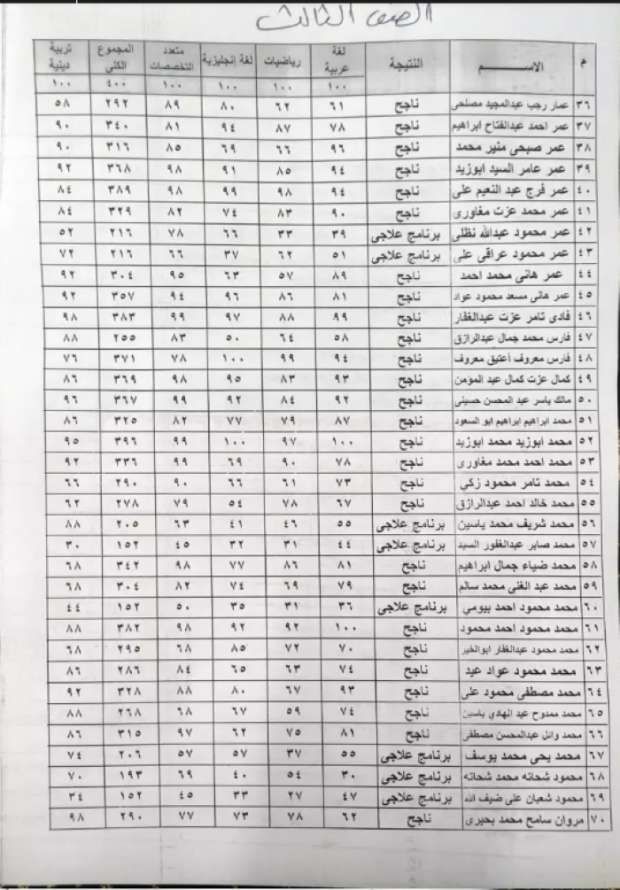 الصف الثالث
م الاســـــم النتيجة لغة عربية رياضيات لغة إنجليزية متعدد التخصصات المجموع الكلى تربية دينية
١٠٠ ١٠٠ ١٠٠ ١٠٠ ٤٠٠ ١٠٠
٣٦ عمار رجب عبدالمجيد مصلحى ناجح ٦١ ٦٢ ٨٠ ٨٩ ٢٩٢ ٥٨
٣٧ عمر احمد عبدالفتاح ابراهيم ناجح ٧٨ ٨٧ ٩٤ ٨١ ٣٤٠ ٩٠
٣٨ عمر صبحى منير محمد ناجح ٩٦ ٦٦ ٦٩ ٨٥ ٣١٦ ٩٠
٣٩ عمر عامر السيد ابوزيد ناجح ٩٤ ٨٥ ٩١ ٩٨ ٣٦٨ ٩٢
٤٠ عمر فرج عبد النعيم على ناجح ٩٤ ٩٨ ٩٩ ٩٨ ٣٨٩ ٨٤
٤١ عمر محمد عزت مغاورى ناجح ٩٠ ٨٣ ٧٤ ٨٢ ٣٢٩ ٨٤
٤٢ عمر محمود عبدالله نظلى برنامج علاجى ٣٩ ٣٣ ٦٦ ٧٨ ٢١٦ ٥٢
٤٣ عمر محمود عراقى على برنامج علاجى ٥١ ٦٢ ٣٧ ٦٦ ٢١٦ ٧٢
٤٤ عمر هانى محمد احمد ناجح ٨٩ ٥٧ ٦٣ ٩٥ ٣٠٤ ٩٢
٤٥ عمر هانى مسعد محمود عواد ناجح ٨١ ٨٦ ٩٦ ٩٤ ٣٥٧ ٩٢
٤٦ فادى تامر عزت عبدالغفار ناجح ٩٩ ٨٨ ٩٧ ٩٩ ٣٨٣ ٩٨
٤٧ فارس محمد جمال عبدالرازق ناجح ٥٨ ٦٤ ٥٠ ٨٣ ٢٥٥ ٨٨
٤٨ فارس معروف اعتيق معروف ناجح ٩٤ ٩٩ ١٠٠ ٧٨ ٣٧١ ٧٦
٤٩ كمال عزت كمال عبد المؤمن ناجح ٩٣ ٨٣ ٩٥ ٩٨ ٣٦٩ ٨٦
٥٠ مالك ياسر عبد المحسن حسينى ناجح ٩٢ ٨٤ ٩٢ ٩٩ ٣٦٧ ٩٦
٥١ محمد ابراهيم ابراهيم ابو السعود ناجح ٨٧ ٧٩ ٧٧ ٨٢ ٣٢٥ ٨٦
٥٢ محمد ابوزيد محمد ابوزيد ناجح ١٠٠ ٩٧ ١٠٠ ٩٩ ٣٩٦ ٩٥
٥٣ محمد احمد محمد مغاورى ناجح ٧٨ ٩٠ ٦٩ ٩٩ ٣٣٦ ٩٢
٥٤ محمد تامر محمود زكي ناجح ٧٣ ٦١ ٦٦ ٩٠ ٢٩٠ ٦٦
٥٥ محمد خالد احمد عبدالرازق ناجح ٦٧ ٧٨ ٥٤ ٧٩ ٢٧٨ ٦٢
٥٦ محمد شريف محمد ياسين برنامج علاجى ٥٥ ٤٦ ٤١ ٦٣ ٢٠٥ ٨٨
٥٧ محمد صابر عبدالغفور السيد برنامج علاجى ٤٤ ٣١ ٣٢ ٤٥ ١٥٢ ٣٠
٥٨ محمد ضياء جمال ابراهيم ناجح ٨١ ٨٦ ٧٧ ٩٨ ٣٤٢ ٦٨
٥٩ محمد عبد الغنى محمد سالم ناجح ٧٩ ٦٩ ٧٤ ٨٢ ٣٠٤ ٦٨
٦٠ محمد محمود احمد بيومي برنامج علاجى ٣٦ ٣١ ٣٥ ٥٠ ١٥٢ ٤٤
٦١ محمد محمود احمد محمود ناجح ١٠٠ ٩٢ ٩٢ ٩٨ ٣٨٢ ٨٨
٦٢ محمد محمود عبدالغفار ابوالخير ناجح ٧٠ ٧٢ ٨٥ ٦٨ ٢٩٥ ٦٨
٦٣ محمد محمود عواد عيد ناجح ٧٤ ٦٣ ٦٥ ٨٤ ٢٨٦ ٨٦
٦٤ محمد مصطفى محمود على ناجح ٩٣ ٦٧ ٨٠ ٨٨ ٣٢٨ ٩٢
٦٥ محمد ممدوح عبد الهادي ياسين ناجح ٧٤ ٥٩ ٦٧ ٦٨ ٢٦٨ ٨٨
٦٦ محمد وائل عبدالمحسن مصطفى ناجح ٨١ ٧٥ ٦٢ ٩٧ ٣١٥ ٨٦
٦٧ محمد يحى محمد يوسف برنامج علاجى ٥٥ ٣٧ ٥٧ ٥٧ ٢٠٦ ٧٤
٦٨ محمود شحاته محمد شحاته برنامج علاجى ٣٠ ٥٤ ٤٠ ٦٩ ١٩٣ ٧٠
٦٩ محمود شعبان على ضيف الله برنامج علاجى ٤٧ ٢٧ ٣٣ ٤٥ ١٥٢ ٣٤
٧٠ مروان سامح محمد بحيرى ناجح ٦٢ ٧٨ ٧٣ ٧٧ ٢٩٠ ٩٨